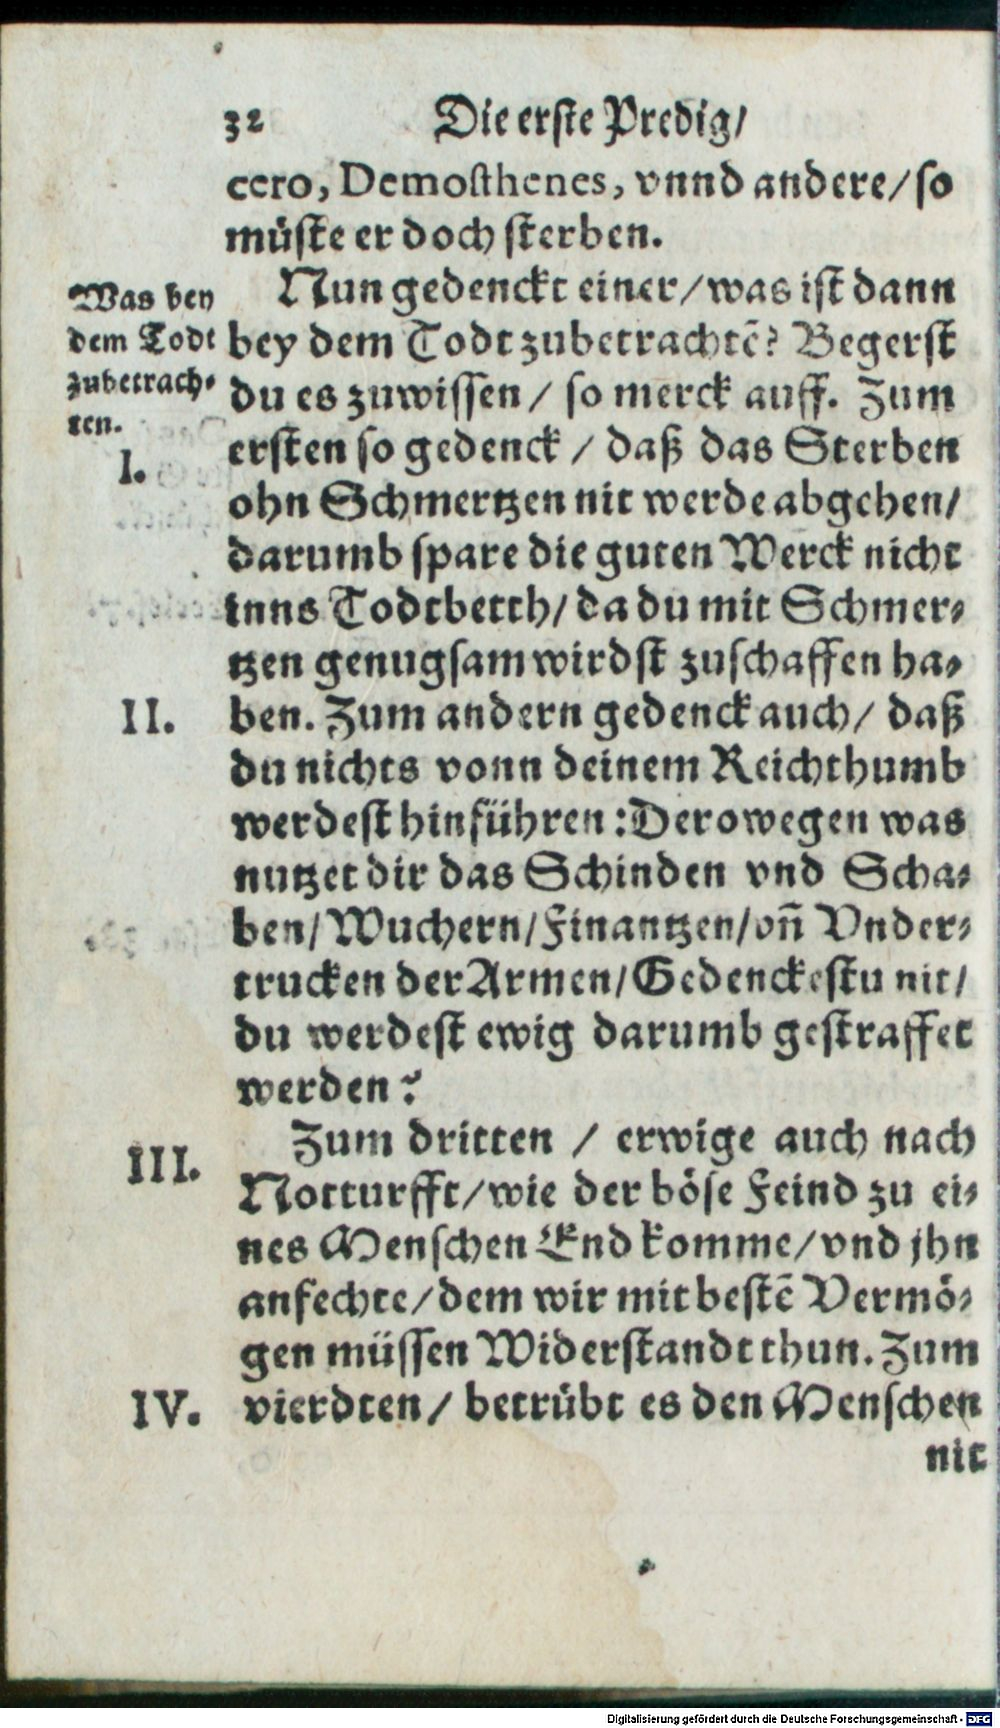 32 Die erste Predig/
cero, Demosthenes, vnnd andere/ so
müste er doch sterben.
Was bey
dem Todt
zubetrach-
ten.
Nun gedenckt einer/ was ist dann
bey dem Todt zubetrachtē? Begerst
du es zuwissen/ so merck auff. Zum
I.
ersten so gedenck/ daß das Sterben
ohn Schmertzen nit werde abgehen/
darumb spare die guten Werck nicht
inns Todtbetth/ da du mit Schmer-
tzen genugsam wirdst zuschaffen ha-
II.
ben. Zum andern gedenck auch/ daß
du nichts vonn deinem Reichthumb
werdest hinführen: Derowegen was
nutzet dir das Schinden vnd Scha-
ben/ Wuchern/ Finantzen/ vñ Vnder-
trucken der Armen/ Gedenckestu nit/
du werdest ewig darumb gestraffet
werden?
III.
Zum dritten / erwige auch nach
Notturfft/ wie der böse Feind zu ei-
nes Menschen End komme/ vnd jhn
anfechte/ dem wir mit bestē Vermö-
gen müssen Widerstandt thun. Zum
IV.
vierdten/ betrübt es den Menschen
nit
Digitalisierung gefördert durch die Deutsche Forschungsgemeinschaft - DFG